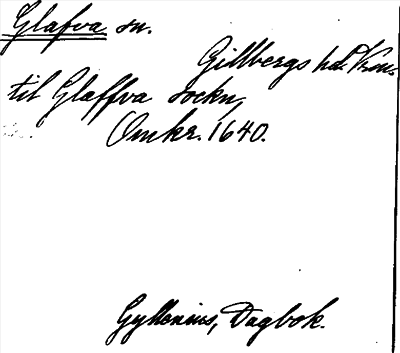 Glafva sn.
Gillbergs hd. Verm.
til Glaffva sockn,
Omkr. 1640.
Gyllenius, Dagbok.